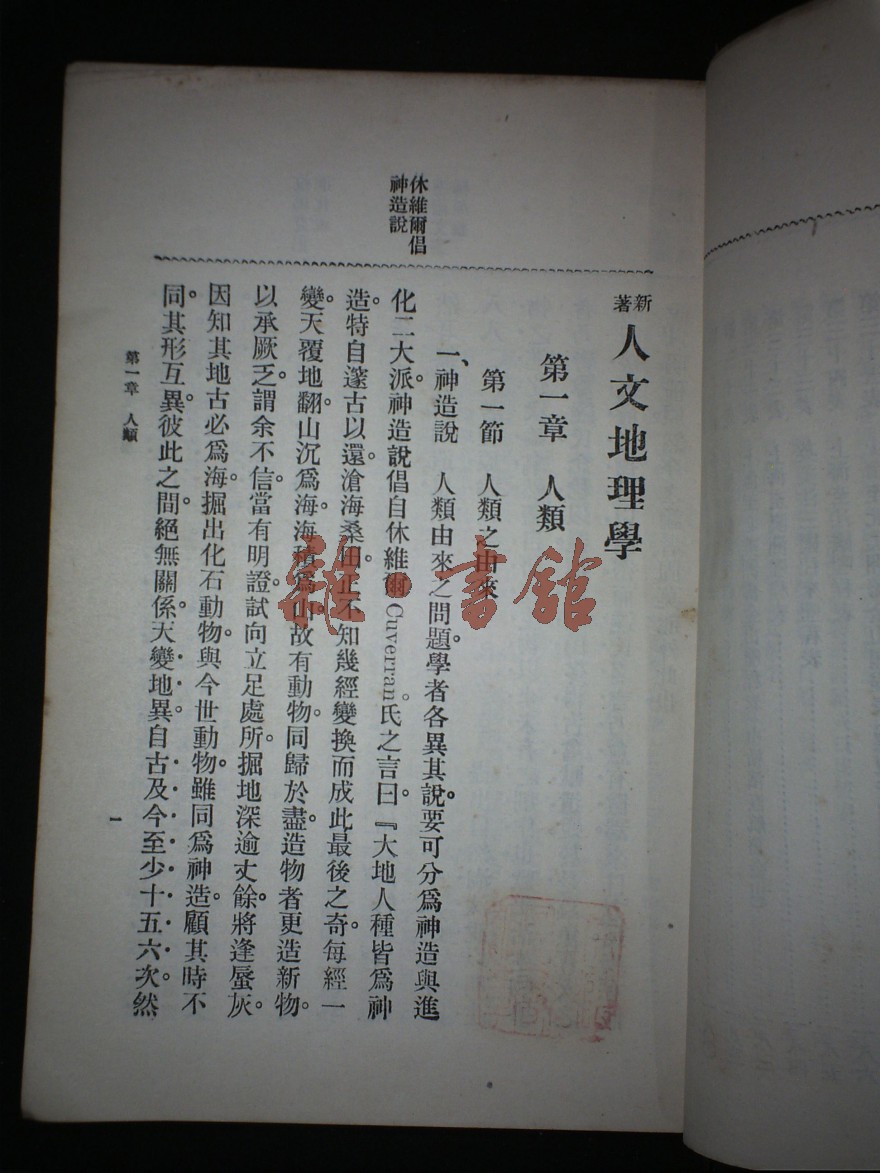 新著 人文地理學
第一章 人類
第一節 人類之由來
一、神造說 人類由來之問題。學者各異其說。要可分爲神造與進
化二大派。神造說倡自休維爾Cuverran。氏之言曰。『大地人種皆爲神
造。特自邃古以還滄海桑田正不知幾經變換而成此最後之奇。每經一
變。天覆地翻。山沉爲海。海積爲山。故有動物。同歸於盡。造物者更造新物。
以承厥乏。謂余不信。當有明證。試向立足處所。掘地深逾丈餘。將逢蜃灰。
因知其地古必爲海。掘出化石動物。與今世動物。雖同爲神造。顧其時不
同。其形互異。彼此之間。絕無關係。天變地異。自古及今至少十五六次。然
休維爾倡
神造說
第一章 人類
一
雜·書館